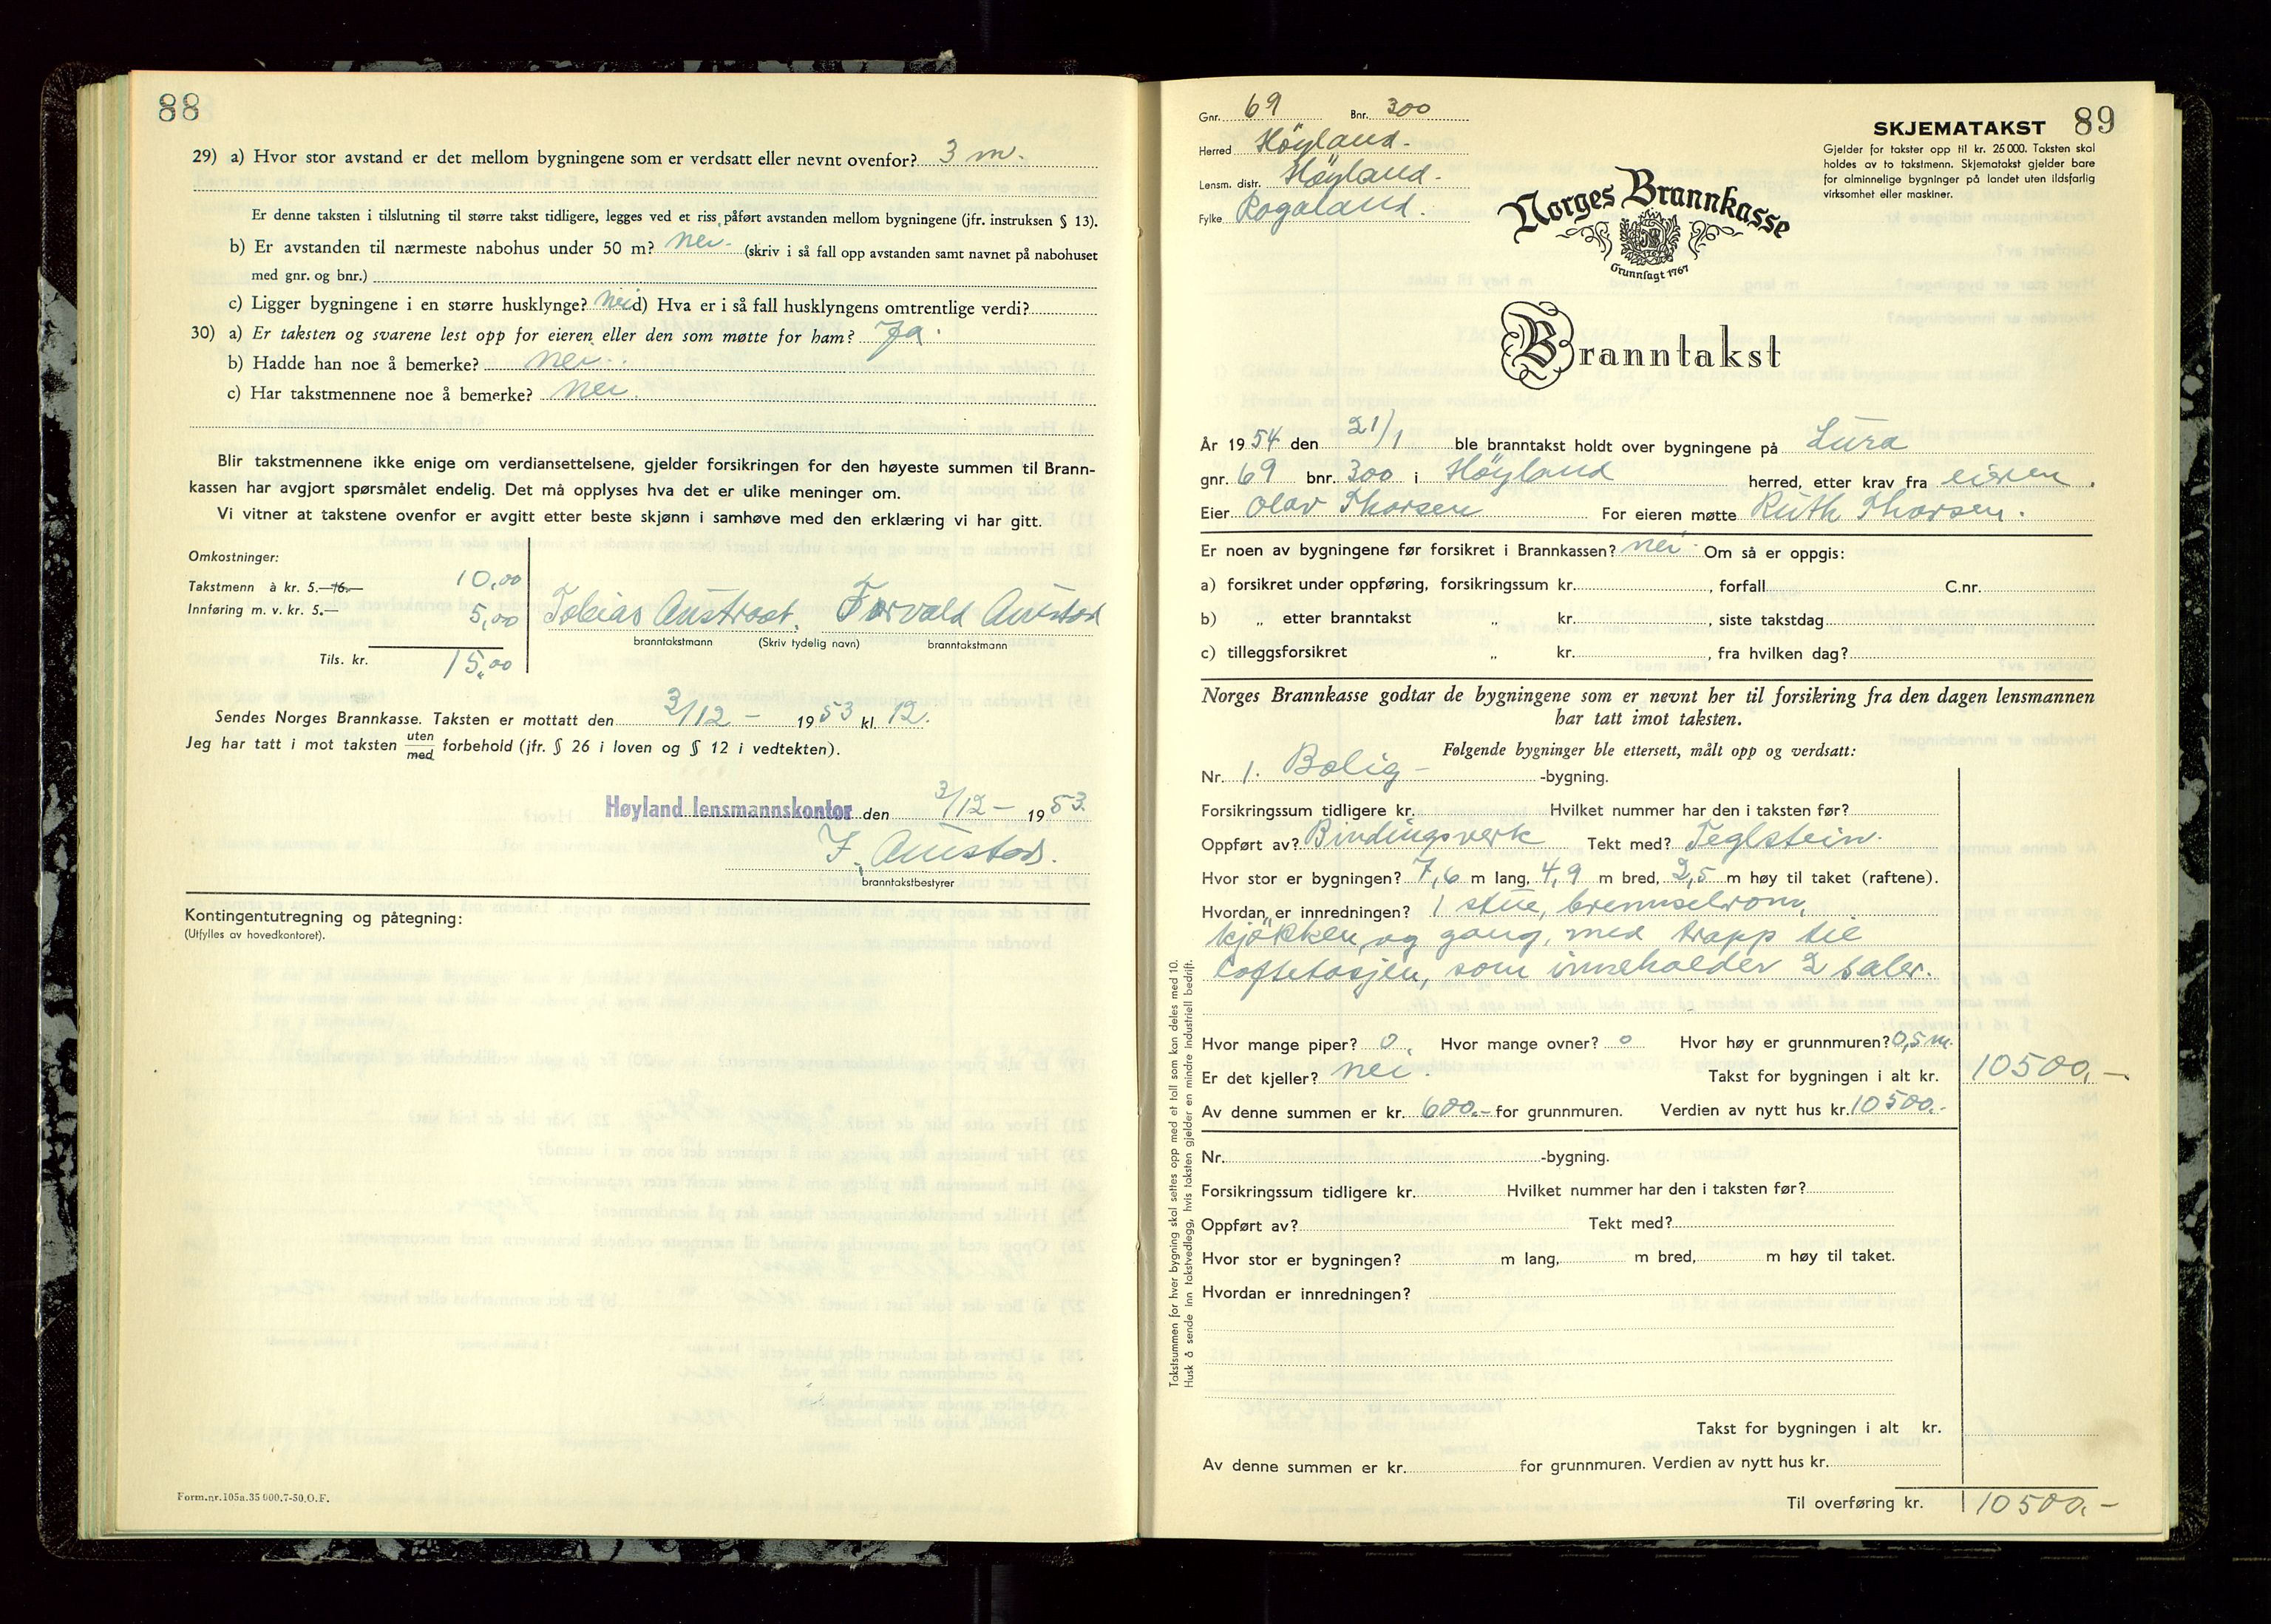 88
29) a) Hvor stor avstand er det mellom bygningene som er verdsatt eller nevnt ovenfor? 3 m.
Er denne taksten i tilslutning til større takst tidligere, legges ved et riss påført avstanden mellom bygningene (jfr. instruksen § 13).
b) Er avstanden til nærmeste nabohus under 50 m? nei. (skriv i så fall opp avstanden samt navnet på nabohuset
med gnr. og bnr.)
c) Ligger bygningene i en større husklynge? nei d) Hva er i så fall husklyngens omtrentlige verdi?
30) a) Er taksten og svarene lest opp for eieren eller den som møtte for ham? Ja.
b) Hadde han noe å bemerke? nei.
c) Har takstmennene noe å bemerke? nei.
Blir takstmennene ikke enige om verdiansettelsene, gjelder forsikringen for den høyeste summen til Brann-
kassen har avgjort spørsmålet endelig. Det må opplyses hva det er ulike meninger om.
Vi vitner at takstene ovenfor er avgitt etter beste skjønn i samhøve med den erklæring vi har gitt.
Omkostninger:
Takstmenn à kr. 5.—16.— 10,00
Innføring m. v. kr. 5.— 5,00
Tils. kr. 15,00
Tobias Austraat. Torvald Austad
branntakstmann (Skriv tydelig navn) branntakstmann
Sendes Norges Brannkasse. Taksten er mottatt den 3/12 - 1953 kl. 12.
Jeg har tatt i mot taksten uten/med forbehold (jfr. § 26 i loven og § 12 i vedtekten).
Høyland lensmannskontor den 3/12 - 1953.
T. Austad.
branntakstbestyrer
Kontingentutregning og påtegning:
(Utfylles av hovedkontoret).
Form.nr.105a.35 000.7-50.O.F.
Gnr. 69 Bnr. 300
Herred Höyland.
Lensm. distr. Höyland.
Fylke Rogaland.
SKJEMATAKST 89
Gjelder for takster opp til kr. 25 000. Taksten skal
holdes av to takstmenn. Skjematakst gjelder bare
for alminnelige bygninger på landet uten ildsfarlig
virksomhet eller maskiner.
Norges Brannkasse
Grunnlagt 1767
Branntakst
År 1954 den 21/1 ble branntakst holdt over bygningene på Lura
gnr. 69 bnr. 300 i Höyland herred, etter krav fra eieren.
Eier Olav Thorsen For eieren møtte Ruth Thorsen.
Er noen av bygningene før forsikret i Brannkassen? nei. Om så er oppgis:
a) forsikret under oppføring, forsikringssum kr. , forfall C.nr.
b) „ etter branntakst „ kr. , siste takstdag
c) tilleggsforsikret „ kr. , fra hvilken dag?
Norges Brannkasse godtar de bygningene som er nevnt her til forsikring fra den dagen lensmannen
har tatt imot taksten.
Følgende bygninger ble ettersett, målt opp og verdsatt:
Nr. 1. Bolig- -bygning.
Forsikringssum tidligere kr. Hvilket nummer har den i taksten før?
Oppført av? Bindingsverk Tekt med? Teglstein.
Hvor stor er bygningen? 7,6 m lang, 4,9 m bred, 2,5 m høy til taket (raftene).
Hvordan er innredningen? 1 stue, brenselrom,
kjökken, og gang, med trapp til
loftetasjen, som inneholder 2 saler.
Hvor mange piper? 0, Hvor mange ovner? 0 Hvor høy er grunnmuren? 0,5 m.
Er det kjeller? nei. Takst for bygningen i alt kr. 10500,-
Av denne summen er kr. 600.- for grunnmuren. Verdien av nytt hus kr. 10500.-
Nr. -bygning.
Forsikringssum tidligere kr. Hvilket nummer har den i taksten før?
Oppført av? Tekt med?
Hvor stor er bygningen? m lang, m bred, m høy til taket.
Hvordan er innredningen?
Takst for bygningen i alt kr.
Av denne summen er kr. for grunnmuren. Verdien av nytt hus kr.
Til overføring kr. 10500,-
Takstsummen for hver bygning skal settes opp med et tall som kan deles med 10.
Husk å sende inn takstvedlegg, hvis taksten gjelder en mindre industriell bedrift.